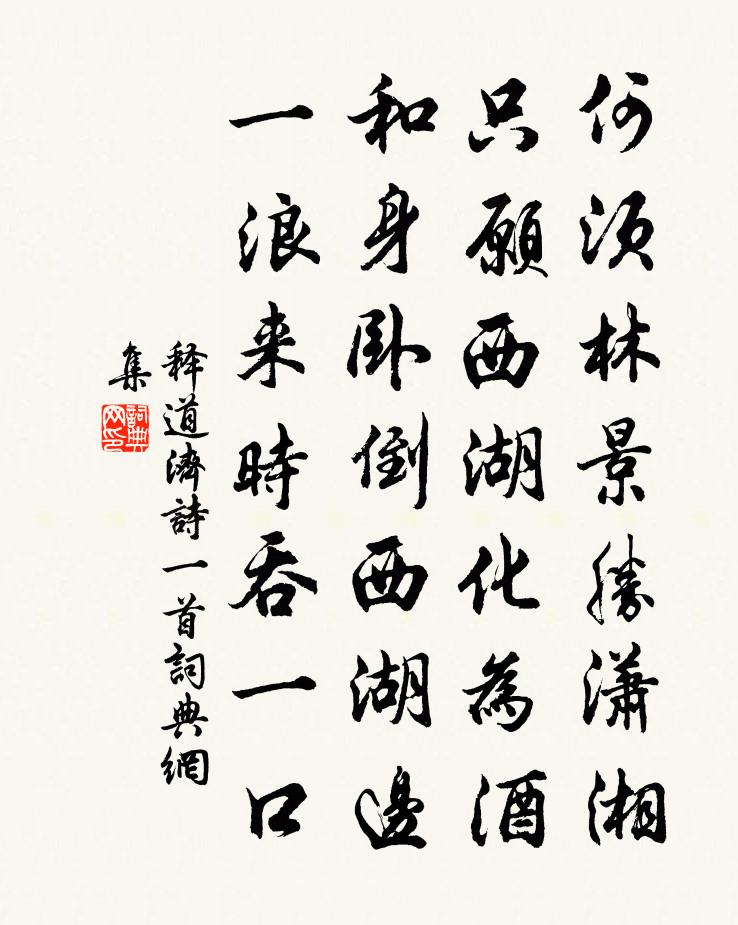 何須林景勝瀟湘
只願西湖化為酒
和身卧倒西湖邊
一浪来時吞一口
释道濟詩一首詞典網
集
詞典
网印